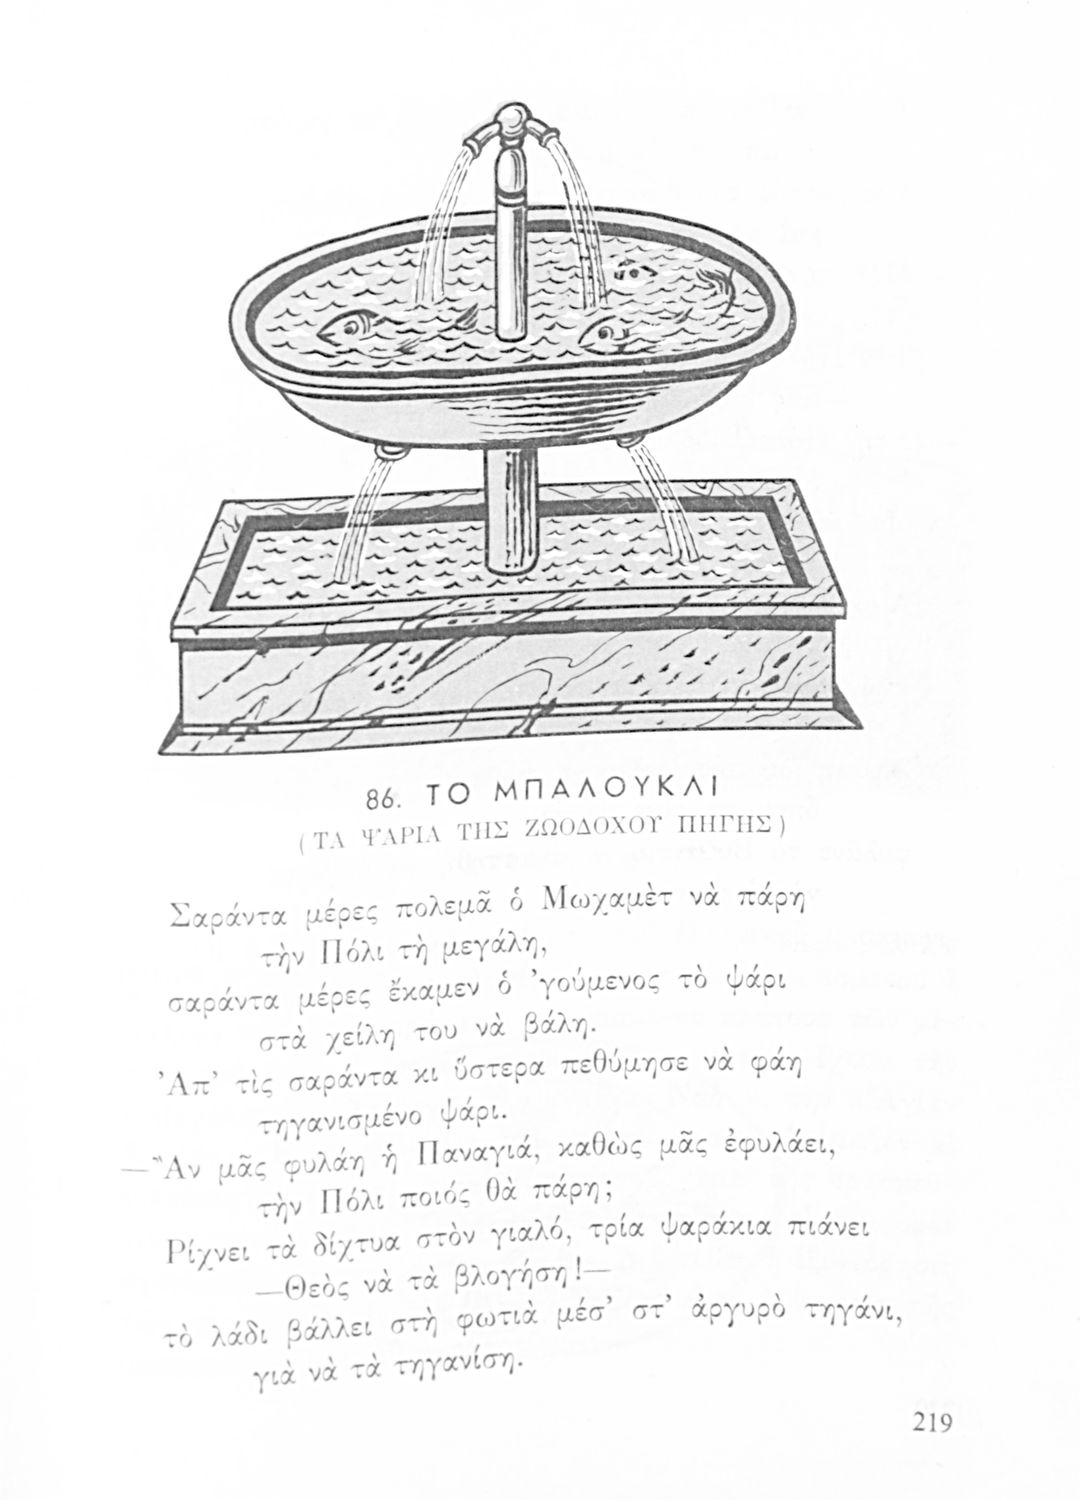 86. ΤΟ ΜΠΑΛΟΥΚΛΙ
(ΤΑ ΨΑΡΙΑ ΤΗΣ ΖΩΟΔΟΧΟΥ ΠΗΓΗΣ)
Σαράντα μέρες πολεμᾶ ὁ Μωχαμὲτ νὰ πάρη
τὴν Πόλι τὴ μεγάλη,
σαράντα μέρες ἔκαμεν ὁ ᾽γούμενος τὸ ψάρι
στὰ χείλη του νὰ βάλη.
᾽Απ᾽ τὶς σαράντα κι ὕστερα πεθύμησε νὰ φάη
τηγανισμένο ψάρι.
—Ἂν μᾶς φυλάη ἡ Παναγιά, καθὼς μᾶς ἐφυλάει,
τὴν Πόλι ποιός θὰ πάρη;
Ρίχνει τὰ δίχτυα στὸν γιαλό, τρία ψαράκια πιάνει
—Θεὸς νὰ τὰ βλογήση!—
τὸ λάδι βάλλει στὴ φωτιὰ μέσ᾽ στ᾽ ἀργυρὸ τηγάνι,
γιὰ νὰ τὰ τηγανίση.
219